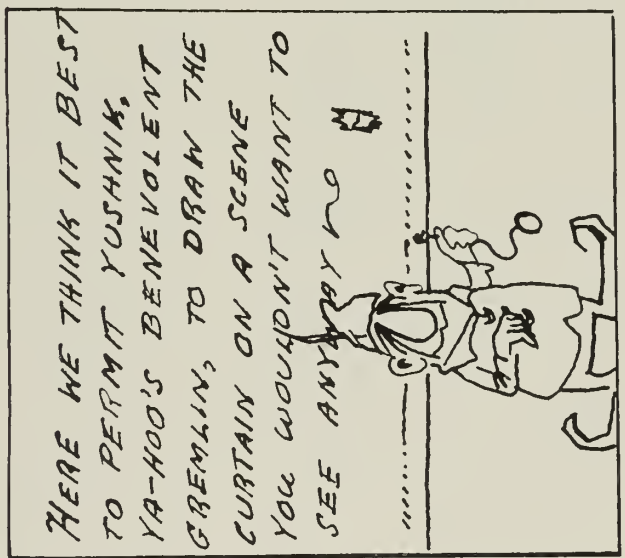 HERE WE THINK IT BEST
TO PERMIT YUSHNIK,
YA-HOO'S BENEVOLENT
GREMLIN, TO DRAW THE
CURTAIN ON A SCENE
YOU WOULDN'T WANT TO
SEE ANYWAY